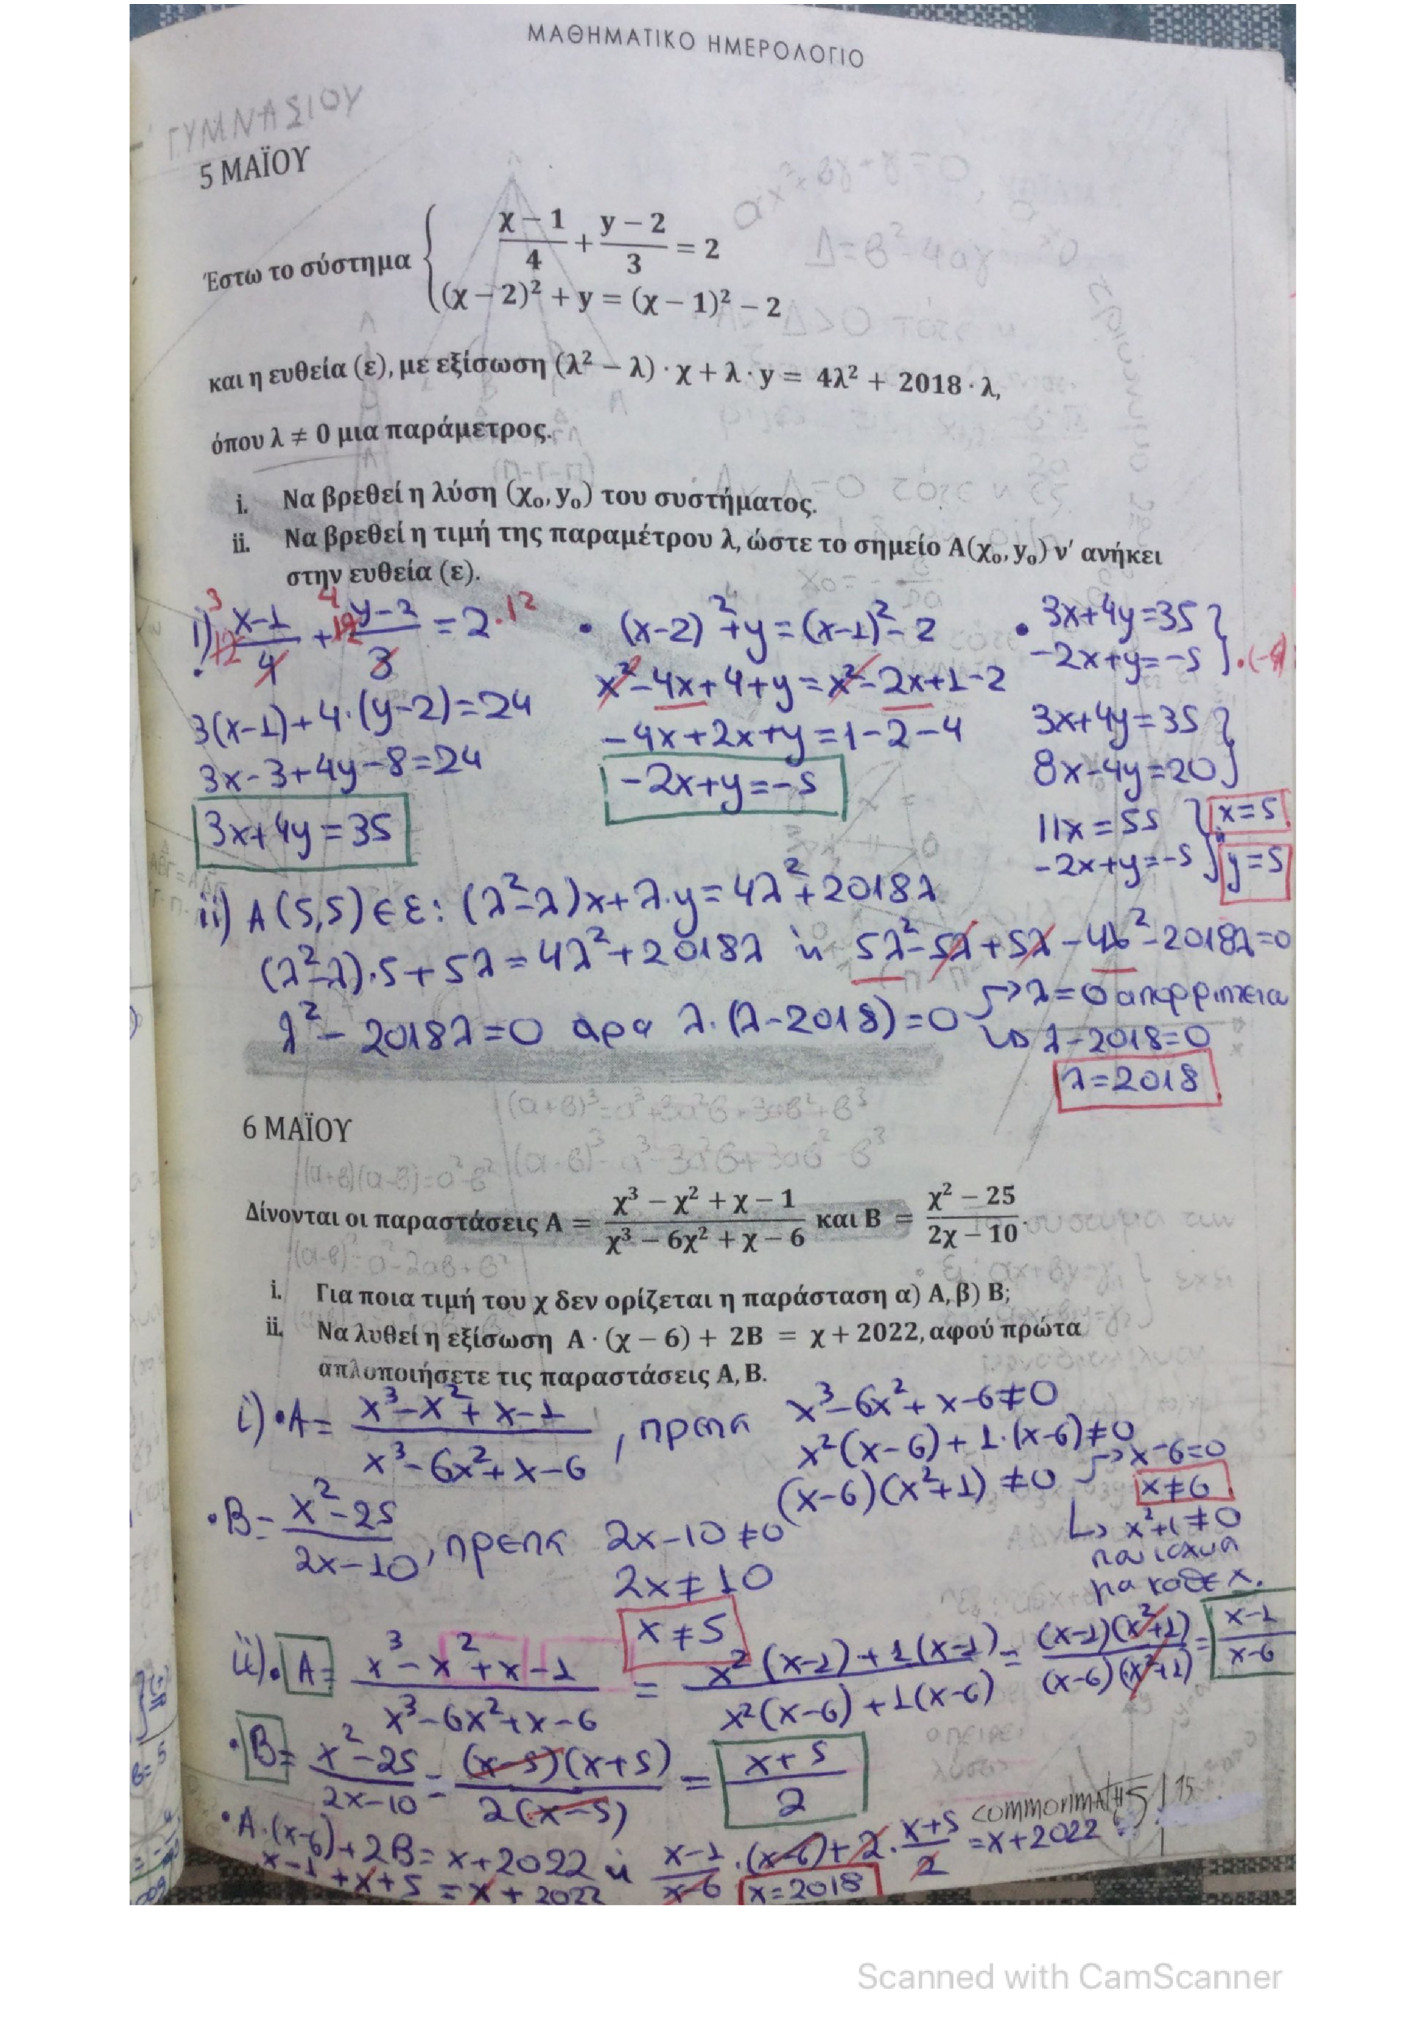 ΜΑΘΗΜΑΤΙΚΟ ΗΜΕΡΟΛΟΓΙΟ
ΓΥΜΝΑΣΙΟΥ
5 ΜΑΪΟΥ
Έστω το σύστημα { (χ − 1)/4 + (y − 2)/3 = 2
(χ − 2)² + y = (χ − 1)² − 2
και η ευθεία (ε), με εξίσωση (λ² − λ) · χ + λ · y = 4λ² + 2018 · λ,
όπου λ ≠ 0 μια παράμετρος.
i. Να βρεθεί η λύση (χ₀, y₀) του συστήματος.
ii. Να βρεθεί η τιμή της παραμέτρου λ, ώστε το σημείο Α(χ₀, y₀) ν' ανήκει
στην ευθεία (ε).
i) 12 (x-1)/4 + 12 (y-2)/3 = 2·12
3(x-1)+4·(y-2)=24
3x-3+4y-8=24
3x+4y=35
• (x-2)²+y=(x-1)²-2
x²-4x+4+y=x²-2x+1-2
-4x+2x+y=1-2-4
-2x+y=-5
• 3x+4y=35 }
-2x+y=-5 } ·(-4)
3x+4y=35 }
8x-4y=20 }
11x=55 } x=5
-2x+y=-5 } y=5
ii) A(5,5)∈ε: (λ²-λ)x+λ·y=4λ²+2018λ
(λ²-λ)·5+5λ=4λ²+2018λ ή 5λ²-5λ+5λ-4λ²-2018λ=0
λ²-2018λ=0 αρα λ·(λ-2018)=0 → λ=0 απορριπτεται
→ λ-2018=0
λ=2018
(α+β)³=α³+3α²β+3αβ²+β³
6 ΜΑΪΟΥ
(α+β)(α-β)=α²-β² (α-β)³=α³-3α²β+3αβ²-β³
Δίνονται οι παραστάσεις Α = (χ³ − χ² + χ − 1)/(χ³ − 6χ² + χ − 6) και Β = (χ² − 25)/(2χ − 10).
(α-β)²=α²-2αβ+β²
i. Για ποια τιμή του χ δεν ορίζεται η παράσταση α) Α, β) Β;
ii. Να λυθεί η εξίσωση Α · (χ − 6) + 2Β = χ + 2022, αφού πρώτα
απλοποιήσετε τις παραστάσεις Α, Β.
i) •A= (x³-x²+x-1)/(x³-6x²+x-6) , πρεπει x³-6x²+x-6≠0
x²(x-6)+1·(x-6)≠0
(x-6)(x²+1)≠0 → x-6=0
x≠6
↳ x²+1≠0
που ισχυει
για καθε x.
•B= (x²-25)/(2x-10) , πρεπει 2x-10≠0
2x≠10
x≠5
ii)• A= (x³-x²+x-1)/(x³-6x²+x-6) = (x²(x-1)+1(x-1))/(x²(x-6)+1(x-6)) = ((x-1)(x²+1))/((x-6)(x²+1)) = (x-1)/(x-6)
•B= (x²-25)/(2x-10) = ((x-5)(x+5))/(2(x-5)) = (x+5)/2
commonmaths
•A·(x-6)+2B=x+2022 ή (x-1)/(x-6)·(x-6)+2·(x+5)/2=x+2022
x-1+x+5=x+2022 x=2018
Scanned with CamScanner